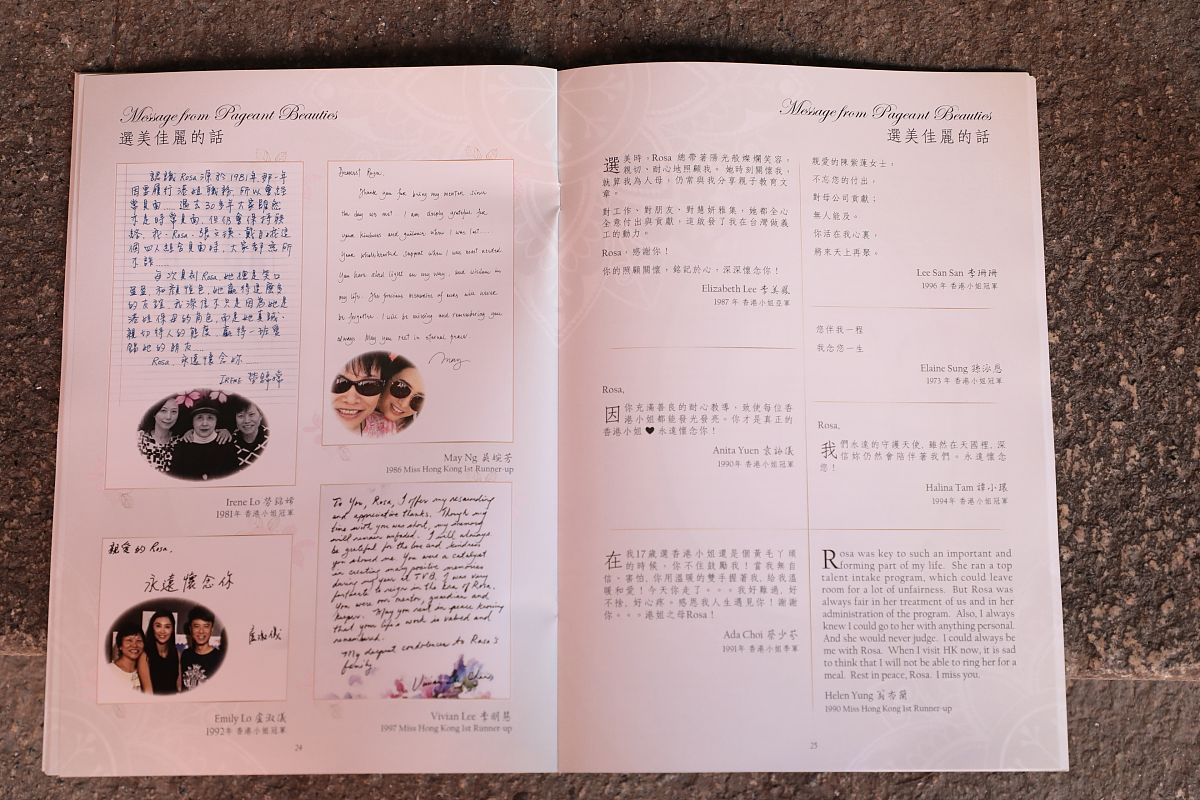 Message from Pageant Beauties
選美佳麗的話
認識Rosa源於1981年那一年
因要履行港姐職務,所以會經
常見面……過去30多年大家雖然
不是時常見面,但仍會保持聯
絡。我、Rosa、張文瑛、戴
個四人組合見面時,大家都無所
不談……
每次見到Rosa,她總是笑口
盈盈,和顏悅色,她贏得這麼多
的友誼,我深信不只是因為她是
港姐保母的角色,而是她真誠、
親切待人的態度,贏得一班愛
錫她的朋友……
Rosa,永遠懷念妳……
IRENE 勞錦嫦
Irene Lo 勞錦嫦
1981年 香港小姐冠軍
Dearest Rosa,
Thank you for being my mentor since
the day we met. I am deeply grateful for
your kindness and guidance when I was lost......
your wholehearted support when I was most needed.
You have shed light on my way, and wisdom in
my life. The precious memories of ours will never
be forgotten. I will be missing and remembering you
always. May you rest in eternal peace.
May
May Ng 吳婉芳
1986 Miss Hong Kong 1st Runner-up
親愛的 Rosa,
永遠懷念你
盧淑儀
Emily Lo 盧淑儀
1992年 香港小姐冠軍
To You, Rosa, I offer my resounding
and appreciative thanks. Though my
time with you was short, my memory
will remain unfaded. I will always
be grateful for the love and kindness
you showed me. You were a catalyst
in creating many positive memories
during my year at TVB. I was very
fortunate to reign in the era of Rosa.
You were our mentor, guardian and
keeper. May you rest in peace knowing
that your life's work is valued and
remembered.
My deepest condolences to Rosa's
family.
Vivian Lee
Vivian Lee 李明慧
1997 Miss Hong Kong 1st Runner-up
24
Message from Pageant Beauties
選美佳麗的話
選美時,Rosa 總帶著陽光般燦爛笑容,
親切、耐心地照顧我。她時刻關懷我,
就算我為人母,仍常與我分享親子教育文
章。
對工作、對朋友、對慧妍雅集,她都全心
全意付出與貢獻,這啟發了我在台灣做義
工的動力。
Rosa,感謝你!
你的照顧關懷,銘記於心,深深懷念你!
Elizabeth Lee 李美鳳
1987 年 香港小姐亞軍
Rosa,
因你充滿善良的耐心教導,致使每位香
港小姐都能發光發亮。你才是真正的
香港小姐 ♥ 永遠懷念你!
Anita Yuen 袁詠儀
1990年 香港小姐冠軍
在我17歲選香港小姐還是個黃毛丫頭
的時候,你不住鼓勵我!當我無自
信、害怕,你用溫暖的雙手握著我,給我溫
暖和愛!今天你走了。。。我好難過,好
不捨,好心疼。感恩我人生遇見你!謝謝
你。。。港姐之母Rosa!
Ada Choi 蔡少芬
1991年 香港小姐季軍
親愛的陳紫蓮女士,
不忘您的付出,
對母公司貢獻;
無人能及。
你活在我心裏,
將來天上再聚。
Lee San San 李珊珊
1996 年 香港小姐冠軍
您伴我一程
我念您一生
Elaine Sung 孫泳恩
1973 年 香港小姐冠軍
Rosa,
我們永遠的守護天使,雖然在天國裡,深
信妳仍然會陪伴著我們。永遠懷念
您!
Halina Tam 譚小環
1994年 香港小姐冠軍
Rosa was key to such an important and
forming part of my life. She ran a top
talent intake program, which could leave
room for a lot of unfairness. But Rosa was
always fair in her treatment of us and in her
administration of the program. Also, I always
knew I could go to her with anything personal.
And she would never judge. I could always be
me with Rosa. When I visit HK now, it is sad
to think that I will not be able to ring her for a
meal. Rest in peace, Rosa. I miss you.
Helen Yung 翁杏蘭
1990 Miss Hong Kong 1st Runner-up
25